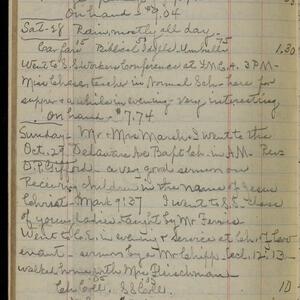 On hand $9.04
Sat-28 Rain, mostly all day.
Car fare Umbrella 75 1.30
Went to S.S. Workers Conference at Y.M.C.A. 3 P.M.
Miss Chase, teacher in Normal Sch. here for
supper & awhile in evening - very interesting.
On hand - $7.74
Sunday - Mr & Mrs Marsh & I went to the
Oct. 29 Delaware Ave Bapt Ch. in A.M. Rev
O.P. Gifford. a very good sermon on
Receiving children in the name of Jesus
Christ - Mark 9:37 I went to S.S. Class
of young ladies taught by Mr Ferris
Went to C.E. in evening & service at Ch. of
- sermon by a Mr Chipp. Eccl. 12:13-
walked home with Mrs Fleischman
Ch. Coll. S.S. Coll. 10